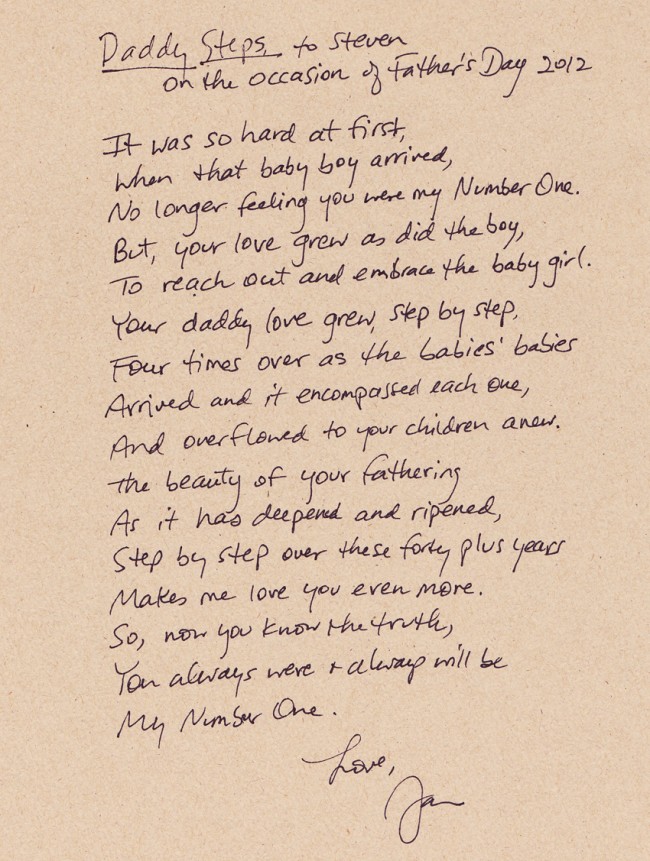 Daddy Steps to Steven
on the occasion of Father's Day 2012
It was so hard at first,
When that baby boy arrived,
No longer feeling you were my Number One.
But, your love grew as did the boy,
To reach out and embrace the baby girl.
Your daddy love grew, step by step,
Four times over as the babies' babies
Arrived and it encompassed each one,
And overflowed to your children anew.
The beauty of your fathering
As it has deepened and ripened,
Step by step over these forty plus years
Makes me love you even more.
So, now you know the truth,
You always were + always will be
My Number One.
Love,
Jan